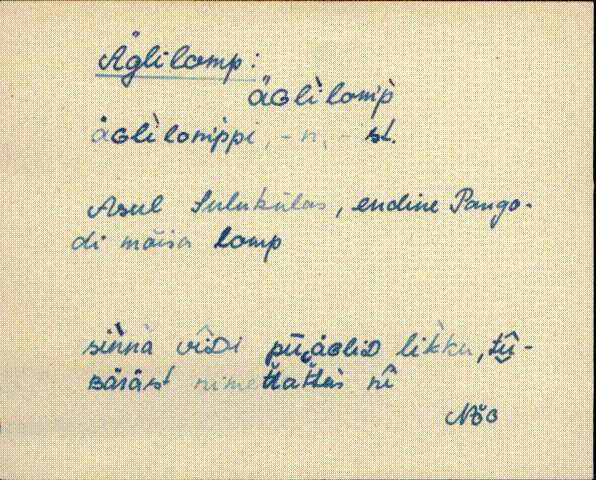 Äglilomp:
äGlì lomp̀
äGlì lomppi, -n, - st.
Asul Sulukülas, endine Pango-
di mõisa lomp
sìǹnà vîDi pǖ, äGliD lìkku, tǖ-
Bäräst nimettattas nî
Nõo